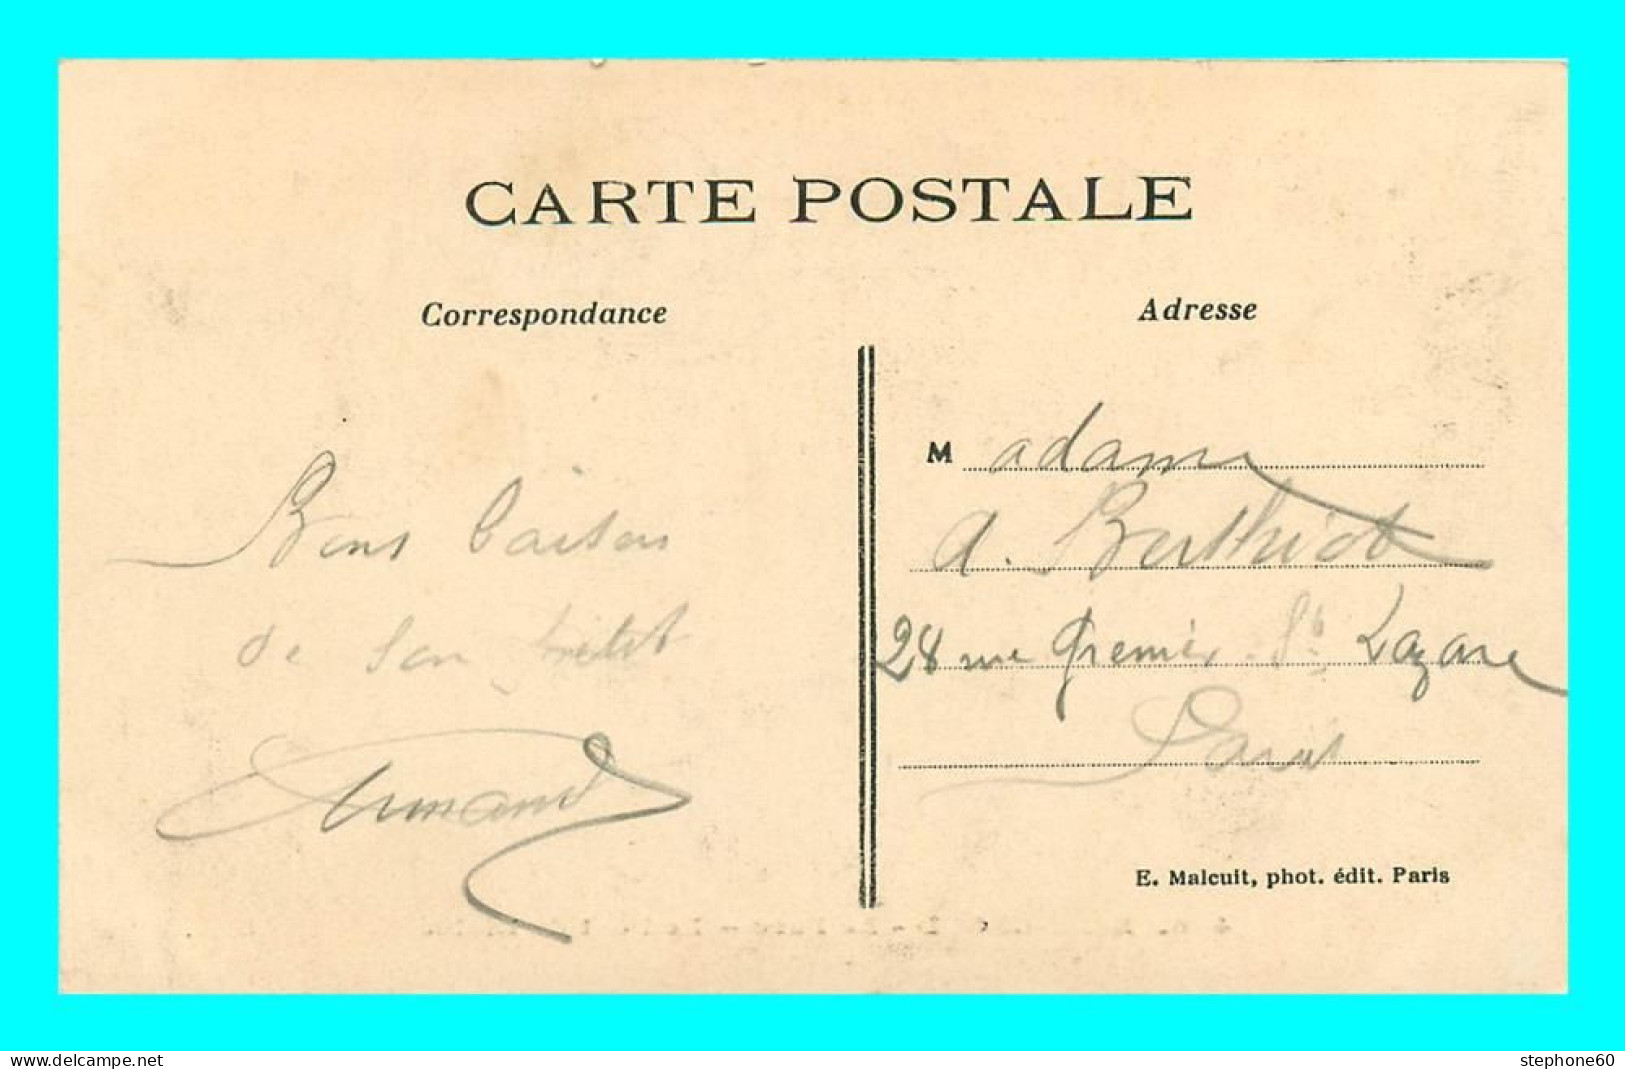 CARTE POSTALE
Correspondance
Adresse
Bons baisers
de son petit
Armand
Madame
A. Berthiot
28 rue Grenier St Lazare
Paris
E. Malcuit, phot. édit. Paris
www.delcampe.net
stephone60